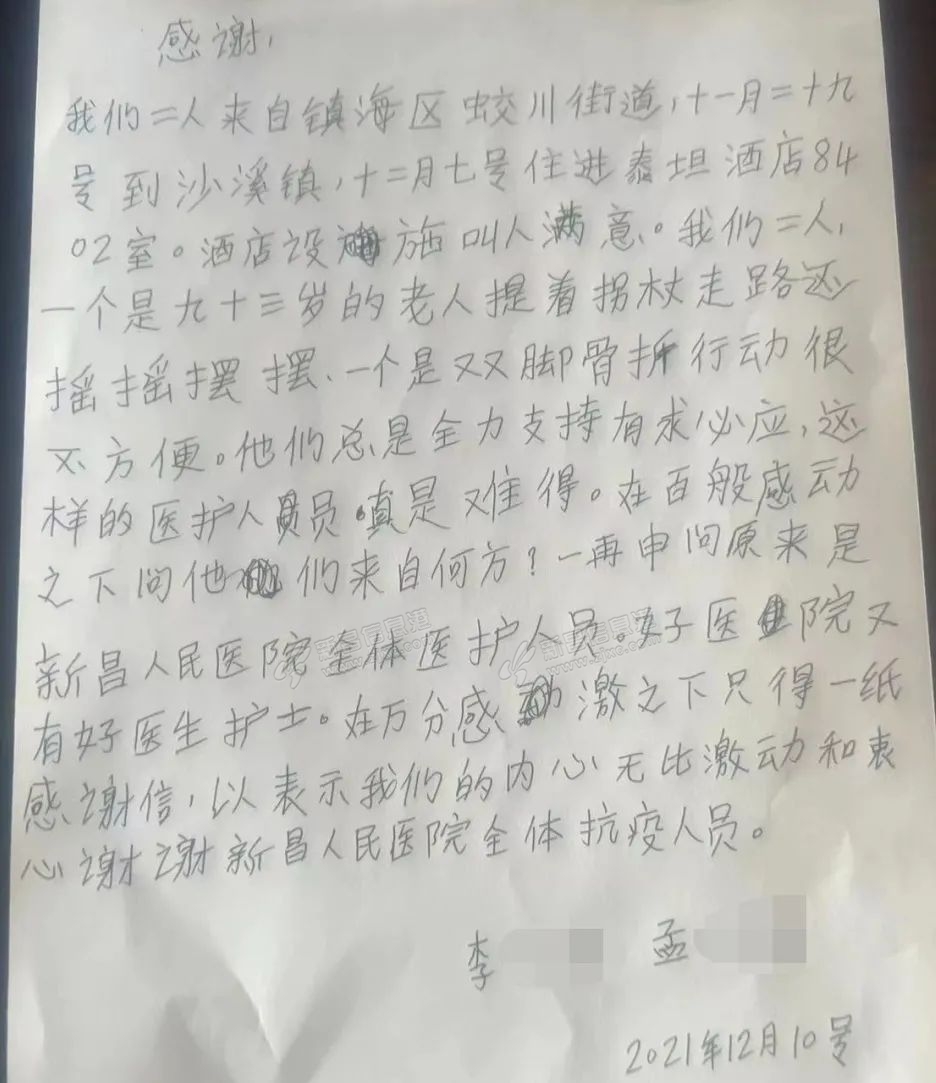 感谢,
我们二人来自镇海区蛟川街道,十一月二十九
号到沙溪镇,十二月七号住进泰坦酒店84
02室。酒店设施叫人满意。我们二人,
一个是九十三岁的老人提着拐杖走路还
摇摇摆摆、一个是双双脚骨折行动很
不方便。他们总是全力支持有求必应,这
样的医护人员员。真是难得。在百般感动
之下问他们来自何方?一再申问原来是
新昌人民医院全体医护人员。好医院又
有好医生护士。在万分感激之下只得一纸
感谢信,以表示我们的内心无比激动和衷
心谢谢新昌人民医院全体抗疫人员。
李 孟
2021年12月10号